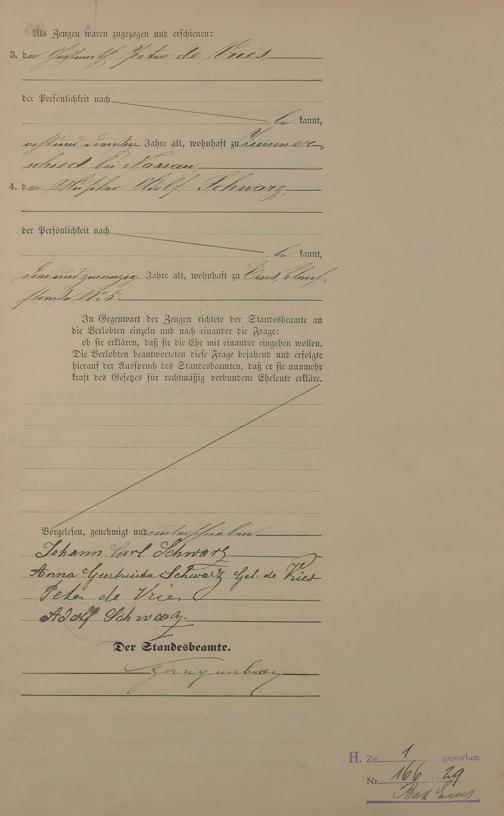 Als Zeugen waren zugezogen und erschienen:
3. der Peter de Vries
der Persönlichkeit nach
be kannt,
Jahre alt, wohnhaft zu Zimmer-
schied bei Nassau
4. der Adolf Schwarz
der Persönlichkeit nach
be kannt,
drei und zwanzig Jahre alt, wohnhaft zu Ems,
No 5.
In Gegenwart der Zeugen richtete der Standesbeamte an
die Verlobten einzeln und nach einander die Frage:
ob sie erklären, daß sie die Ehe mit einander eingehen wollen.
Die Verlobten beantworteten diese Frage bejahend und erfolgte
hierauf der Ausspruch des Standesbeamten, daß er sie nunmehr
kraft des Gesetzes für rechtmäßig verbundene Eheleute erkläre.
Vorgelesen, genehmigt und unterschrieben
Johann Carl Schwarz
Anna Gertruida Schwarz Geb. de Vries
Peter de Vries
Adolf Schwarz.
Der Standesbeamte.
H. Zu 1 gestorben
Nr. 166 29
Bad Ems